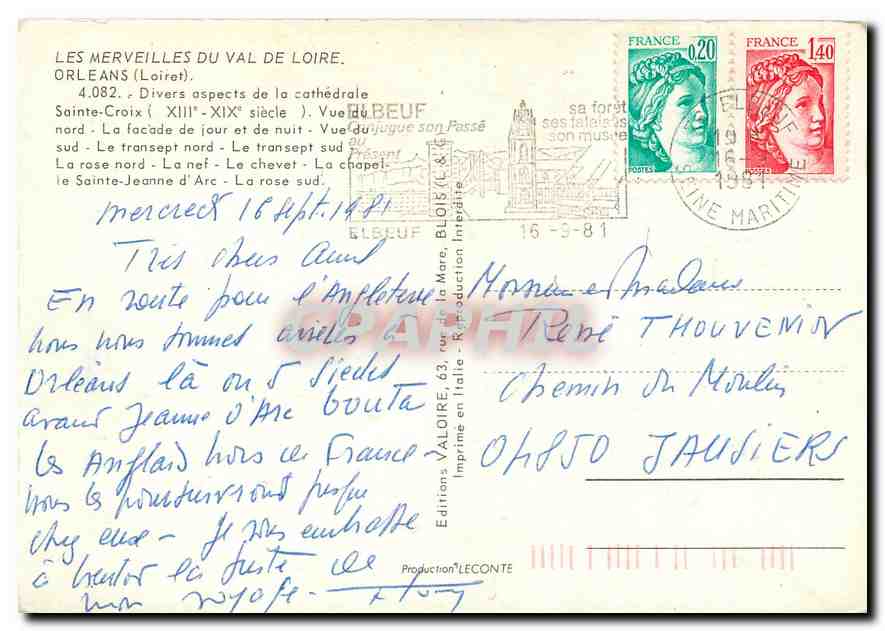 LES MERVEILLES DU VAL DE LOIRE.
ORLEANS (Loiret).
4.082. - Divers aspects de la cathédrale
Sainte-Croix ( XIIIe - XIXe siècle ). Vue du
nord - La facade de jour et de nuit - Vue du
sud - Le transept nord - Le transept sud -
La rose nord - La nef - Le chevet - La chapel-
le Sainte-Jeanne d'Arc - La rose sud.
ELBEUF
Conjugue son Passé
au
Présent
sa forêt
ses falaises
son musée
ELBEUF
16 -9-81
FRANCE
0,20
POSTES
FRANCE
1,40
POSTES
ELBEUF
19
16-9
1981
SEINE MARITIME
mercredi 16 sept. 1981
Très chers amis
En route pour l'Angleterre
nous nous sommes arrêtés à
Orléans là où 5 siècles
avant Jeanne d'Arc bouta
les Anglais hors de France -
nous les poursuivrons jusque
chez eux - Je vous embrasse
à bientôt la suite de
mon voyage -
Editions VALOIRE, 63, rue de la Mare, BLOIS (L & C)
Imprimé en Italie - Reproduction Interdite
Monsieur et Madame
René THOUVENION
Chemin du Moulin
04850 JAUSIERS
Production LECONTE
CPARPHIL